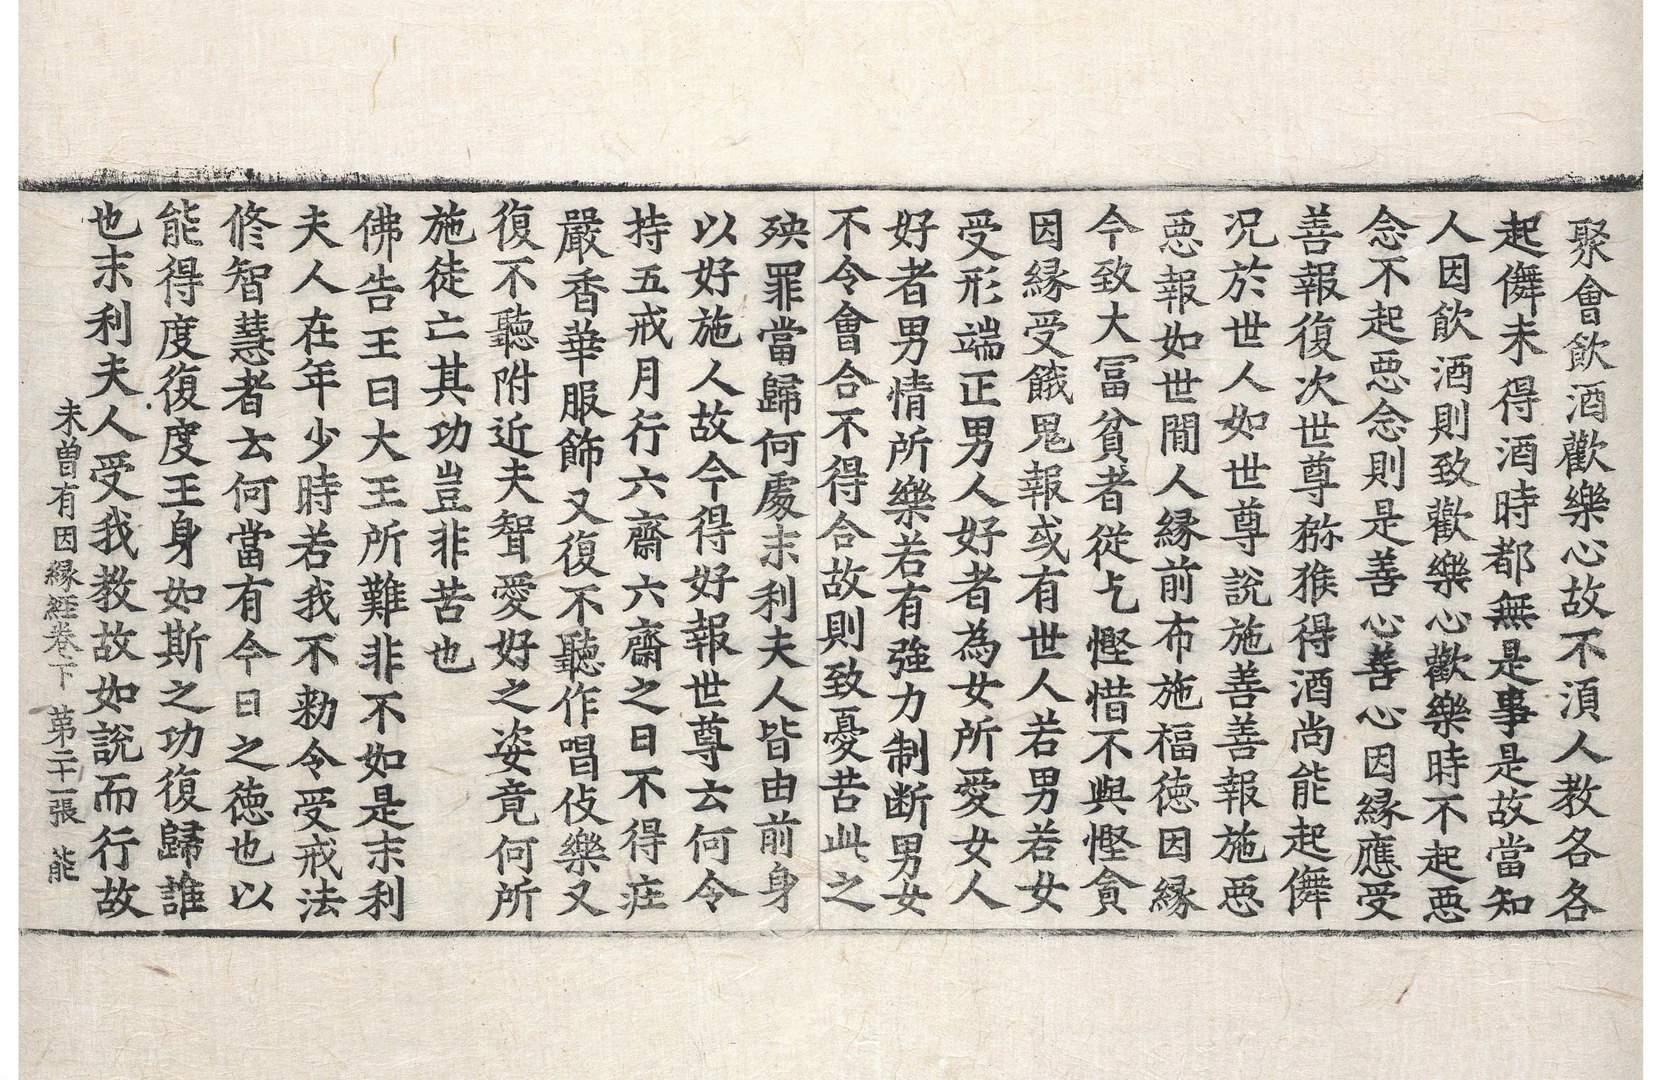 聚會飲酒歡樂心故不湏人教各各
起儛未得酒時都無是事是故當知
人因飲酒則致歡樂心歡樂時不起惡
念不起惡念則是善心善心因緣應受
善報復次世尊猕猴得酒尚能起儛
况於世人如世尊說施善善報施惡
惡報如世間人緣前布施福徳因緣
今致大冨貧者從乞慳惜不與慳貪
因緣受餓鬼報或有世人若男若女
受形端正男人好者為女所愛女人
好者男情所樂若有強力制断男女
不令會合不得合故則致憂苦此之
殃罪當歸何處末利夫人皆由前身
以好施人故今得好報世尊云何令
持五戒月行六齋六齋之日不得莊
嚴香華服飾又復不聽作唱伎樂又
復不聽附近夫聟愛好之姿竟何所
施徒亡其功豈非苦也
佛告王曰大王所難非不如是末利
夫人在年少時若我不勑令受戒法
修智慧者云何當有今日之徳也以
能得度復度王身如斯之功復歸誰
也末利夫人受我教故如說而行故
未曽有因縁経卷下 第二十一張 能